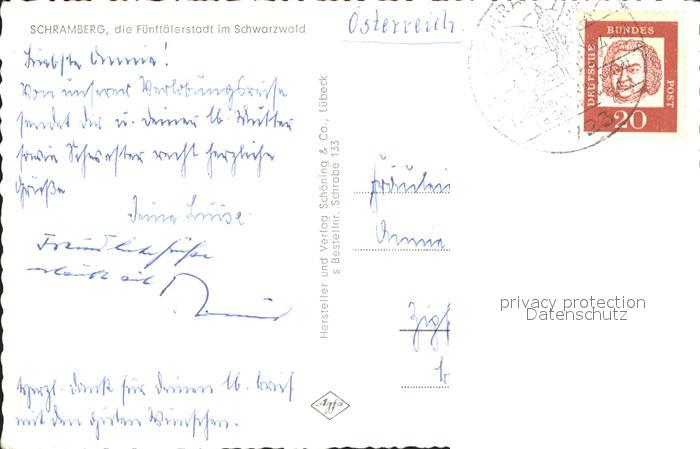 SCHRAMBERG, die Fünftälerstadt im Schwarzwald
Liebste Annie!
Von unserer Verlobungsreise
sendet dir u. deiner lb. Mutter
sowie Schwester recht herzliche
Grüße
Deine Luise.
Freundliche Grüße
erlaubt sich
Herzl. Dank für deinen lb. Brief
mit den guten Wünschen.
Hersteller und Verlag Schöning & Co., Lübeck
s Bestellnr. Schrabe 133
Agfa
Österreich.
DEUTSCHE
BUNDES
POST
20
Fräulein
Anna
privacy protection
Datenschutz